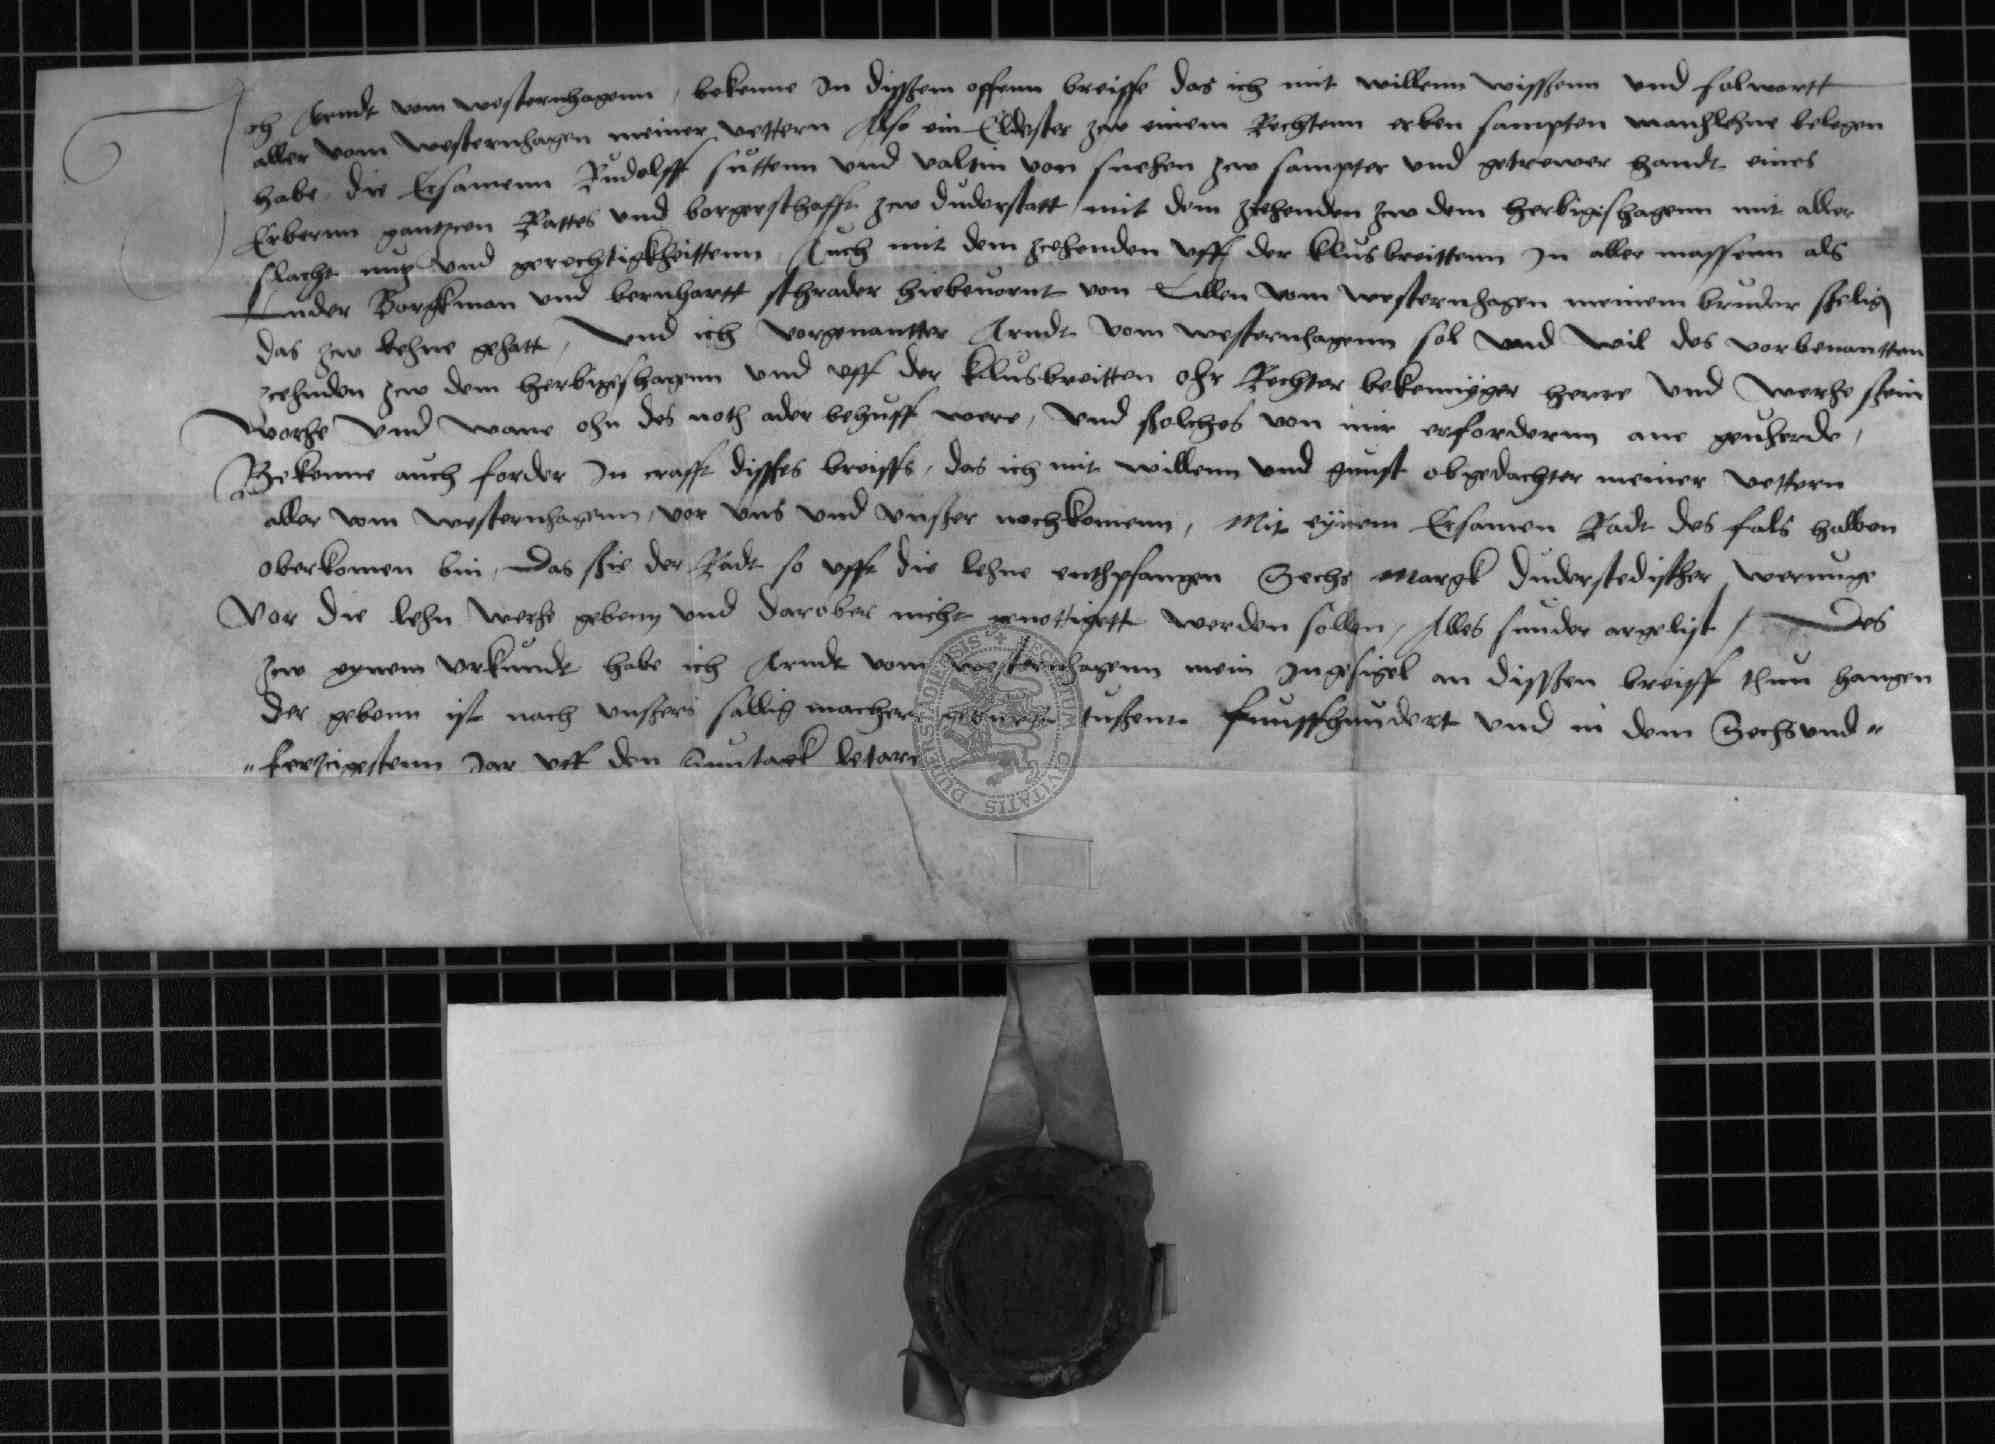 Ich Arndt vom westernhagenn, bekenne In dissem offenn breiffe das ich mit willenn wissenn vnd folwortt
aller vom westernhagen meiner vettern Also ein Eldester zcw einem Rechtenn erben sampten manhlehne belegen
habe, die Ersamenn Rudolff suttenn vnd valtin von snehen zcw sampter vnd getrewer handt eines
Erbernn gantzcen Rattes vnd borgerschafft zcw duderstatt mit dem zcehenden zcw dem herbigishagenn mit aller
slacht nutz vnd gerechtigkheittenn Auch mit dem zcehenden vff der klusbreittenn In aller massenn als
Borgkman vnd bernhartt schrader hiebeuornt von vom westernhagen meinem bruder shelig
das zcw lehne gehatt, Vnd ich vorgenantter Arndt vom westernhagenn sol vnd wil des vorbenantten
zcehnden zcw dem herbigishagenn vnd vff der klusbreitten ohr Rechter bekenniger herre vnd werhe shein
worhe vnd wane ohn des noth ader behuff were, vnd sholches von mir erfordernn ane geuherde,
Bekenne auch forder In crafft disses breiffs, das ich mit willenn vnd gunst obgedachter meiner vettern
aller vom westernhagenn, vor vns vnd vnsher nochkomenn, Mit eynem Ersamen Radt des fals halben
oberkomen bin, Das shie der Radt so offt die lehne enthpfangen Sechs Margk duderstedischer werunge
Vor die lehn werhe gebenn vnd darober nicht genottigett werden sollen, Alles sunder argelist, Des
zcw eynem vrkundt habe ich Arndt vom westernhagenn mein Ingesigel an disshen breiff thun hangen
der gebenn ist nach vnshers sallig machers geburth tushent funffhundert vnd in dem Sechsvnd"
"ferzcigestenn Jar vff den Suntagk letare
SIGILLUM CIVITATIS DUDERSTADIENSIS